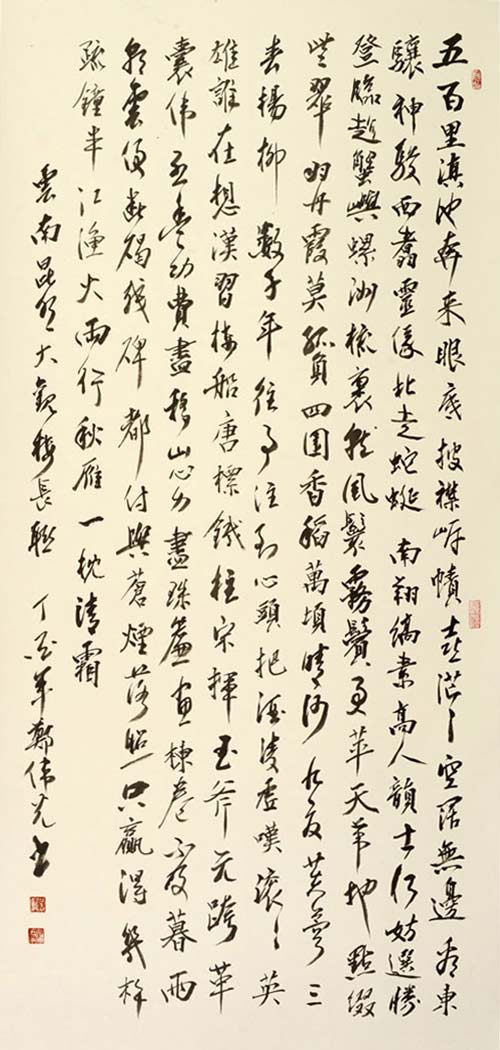 五百里滇池奔来眼底披襟岸幘喜茫々空闊無邊看東
驤神駿西翥靈儀北走蜿蜒南翔縞素高人韻士何妨選勝
登臨趁蟹嶼螺洲梳裹就風鬟霧鬢更苹天葦地點綴
些翠羽丹霞莫孤負四圍香稻萬頃晴沙九夏芙蓉三
春楊柳數千年往事注到心頭把酒凌虛嘆滾々英
雄誰在想漢習樓船唐標鐵柱宋揮玉斧元跨革
囊偉烈豐功費盡移山心力盡珠簾畫棟卷不及暮雨
朝雲便斷碣殘碑都付與蒼煙落照只贏得幾杵
疏鐘半江漁火兩行秋雁一枕清霜
雲南昆明大觀樓長聯 丁酉年鄭偉光書